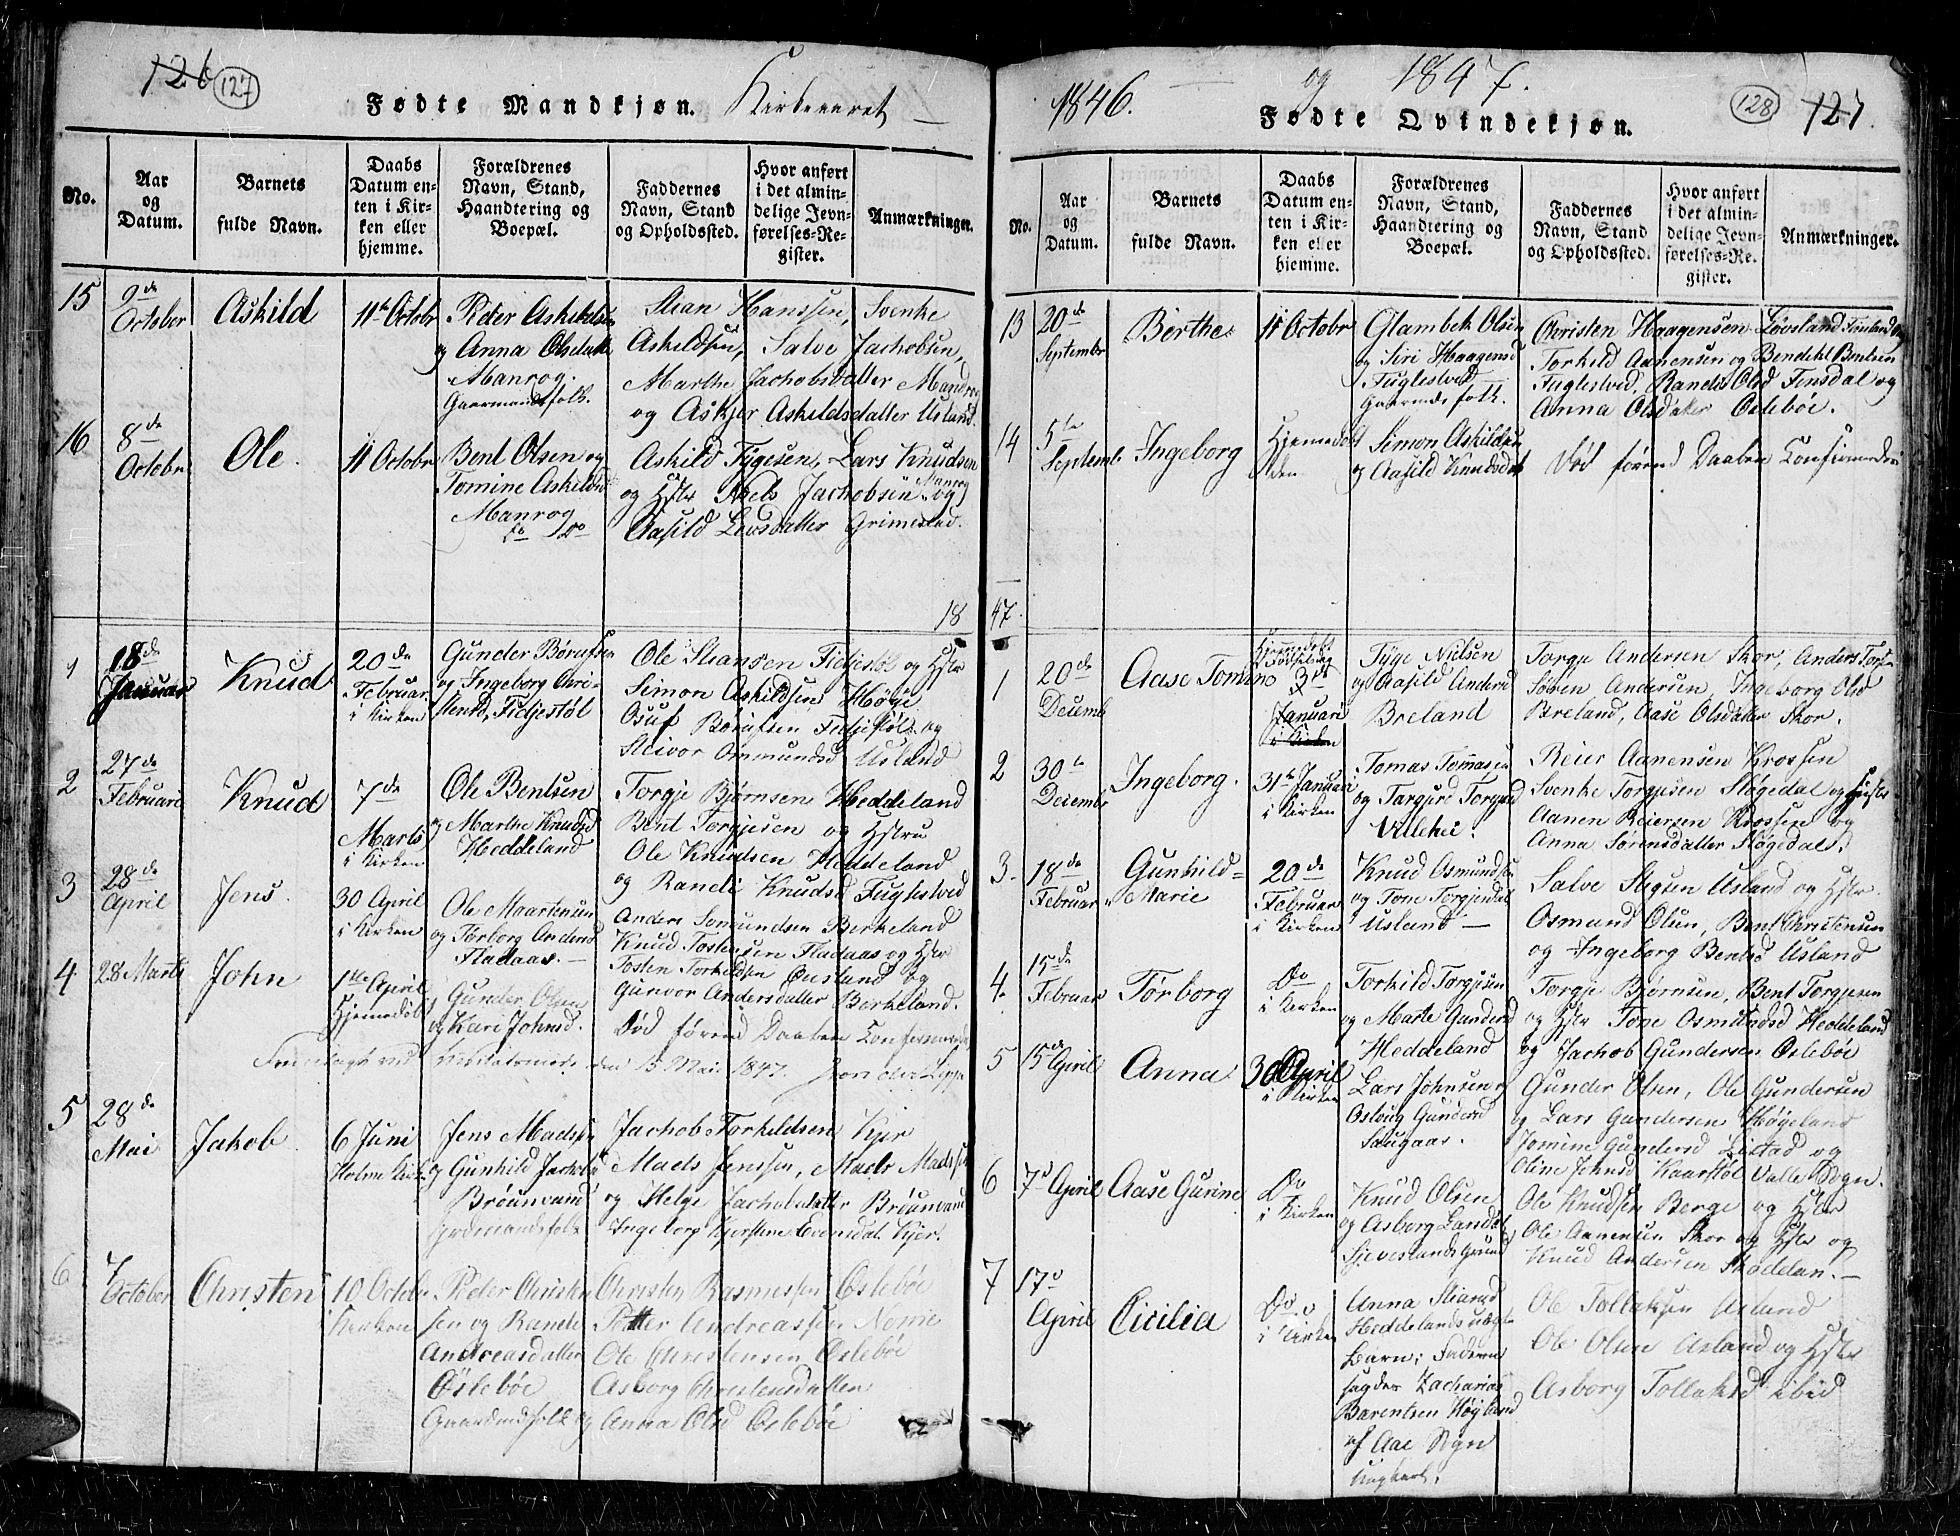 126 (127)
Fødte Mandkjøn. Kirkeaaret
No.
Aar og Datum.
Barnets fulde Navn.
Daabs Datum enten i Kirken eller hjemme.
Forældrenes Navn, Stand, Haandtering og Boepæl.
Faddernes Navn, Stand og Opholdssted.
Hvor anført i det almindelige Jevnførelses-Register.
Anmærkninger.
15
9de October
Askild
11te Octobr
Peder Askildsen
og Anna Olsdatte
Manrog.
Gaarmandsfolk.
Stian Hanssen, Svenke
Askildsen, Salve Jachobsen,
Marthe Jachobsdatter Manrog
og Askjer Askildsdatter Usland.
16
8de Octobr
Ole.
11 Octobr
Bent Olsen og
Tomine Askildsd
Manrog
do do
Askild Tygesen, Lars Knudsen
og Hstr Niels Jachobsen Manrog og
Aasild Levsdatter Grimestad.
18
1
18de Januar
Knud
20de Februar i Kirken
Gunder Børufsen
og Ingeborg Chri-
stensd, Fidjestøl
Ole Stiansen Fidjestøl og Hstr
Simon Askildsen Høgje
Osuf Børufsen Fidjestøl og
Steivor Ommundsd Usland
2
27de Februari
Knud
7de Marts i Kirken
Ole Bentsen
og Marthe Knudsd
Heddeland
Torgje Bjørnsen Heddeland
Bent Torgjesen og Hstru
Ole Knudsen Heddeland
og Randi Knudsd Fuglestved
3
28de April
Jens.
30 April i Kirken
Ole Maartensen
og Torborg Andersd
Fladaas.
Anders Somundsen Berkeland
Knud Tostensen Fladaas og Hstr
Tosten Torkildsen Øusland og
Gunvor Andersdatter Berkeland.
4
28 Marts
John
1ste April Hjemedøb
Gunder Olsen
og Kari Johnsd.
Død førend Daaben Confirmered
Fremlagt ved Visitatsmøde, den 15 Mai 1847.
5
28de Mai
Jakob
6 Juni Holme Kirke
Jens Madsen
og Gunhild Jachobsd
Brøunvand
Gaardmandsfolk
Jachob Torkildsen Kjer
Mads Jenssen, Mads Madssen
og Helge Jachobsdatter Brøunvand
Ingeborg Kjerstine Evensdat. Kjer.
6
7 October
Christen
10 Octobr i Kirken
Peder Christen
sen og Randi
Andreasdatter
Oslebøe
Gaardmandsfolk
Christen Rasmussen Oslebøe
Petter Andreassen Nome
Ole Christensen Oslebøe
Asborg Christensdatter
og Anna Olsd Oslebøe
1846. og 1847.
Fødte Qvindekjøn.
(128) 127.
No.
Aar og Datum.
Barnets fulde Navn.
Daabs Datum enten i Kirken eller hjemme.
Forældrenes Navn, Stand, Haandtering og Boepæl.
Faddernes Navn, Stand og Opholdssted.
Hvor anført i det almindelige Jevnførelses-Register.
Anmærkninger.
13
20de Septembr
Berthe
11 Octobr
Glambek Olsen
og Siri Haagensd
Fuglestved
Gaarmdsfolk.
Christen Haagensen Løvsland
Torkild Aanensen og Bendikt Bentsen
Fuglestved, Randi Olsd Fensdal og
Anna Olsdatter Oslebøe.
14
5te Septemb
Ingeborg
Hjemedøbt
Simon Askildsen
og Aasild Knudsdat
Død førend Daaben Confirmeredes
47.
1
20de Decemb
Aase Tomine
Hjemmedøbt 3de Januari i Kirken
Tyge Nielsen
og Aasild Andersd
Breland
Torgje Andersen Skor, Anders Tors-
Søren Andersen, Ingeborg Olsd
Breland, Aase Olsdatter Skor.
2
30te Decembr
Ingeborg.
31te Januari i Kirken
Tomas Tomasen
og Targjerd Torgjusd
Vilehei.
Reier Aanensen Krossen
Svenke Torgjesen Støgedal og Hustr
Aanen Reiersen Krossen og
Anna Sørensdatter Støgedal.
3.
18de Februar
Gunhild=Marie
20de Februar i Kirken
Knud Osmundsen
og Tone Torgjesdat
Usland
Salve Stigsen Usland og Hstr.
Osmund Olsen, Bent Christensen
og Ingeborg Bentsd Usland
4.
15de Februar
Torborg
Do i Kirken
Torkild Torgjesen
og Marte Gundersd
Heddeland
Torgje Bjørnsen, Bent Torgjesen
og Hstr Tone Osmundsd Heddeland
og Jachob Gundersen Oslebøe
5
15de April
Anna
30 April i Kirken
Lars Johnsen og
Osborg Gundersd
Saugaas.
Gunder Olsen, Ole Gundersen
og Lars Gundersen Høgeland
Tomine Gundersd Listad og
Oline Johnsd Kaarstøl Valle Sogn.
6
7de April
Aase Gurine
Do i Kirken
Knud Olsen
og Asborg Larsdat
Sjøveslands Grund
Ole Knudsen Berge og Hstr
Ole Aanensen Skor og Hstr og
Knud Andersen Skodelan.
7
17de April
Cicilia
Do i Kirken
Anna Stiansd
Heddelands uægte
Barn; Faderen
siges Zacharias
Barentsen Høyland
af Aae Sogn
Ungkarl.
Ole Tollaksen Asland
Ole Olsen Asland og Hstr
Asborg Tollaksd ibid